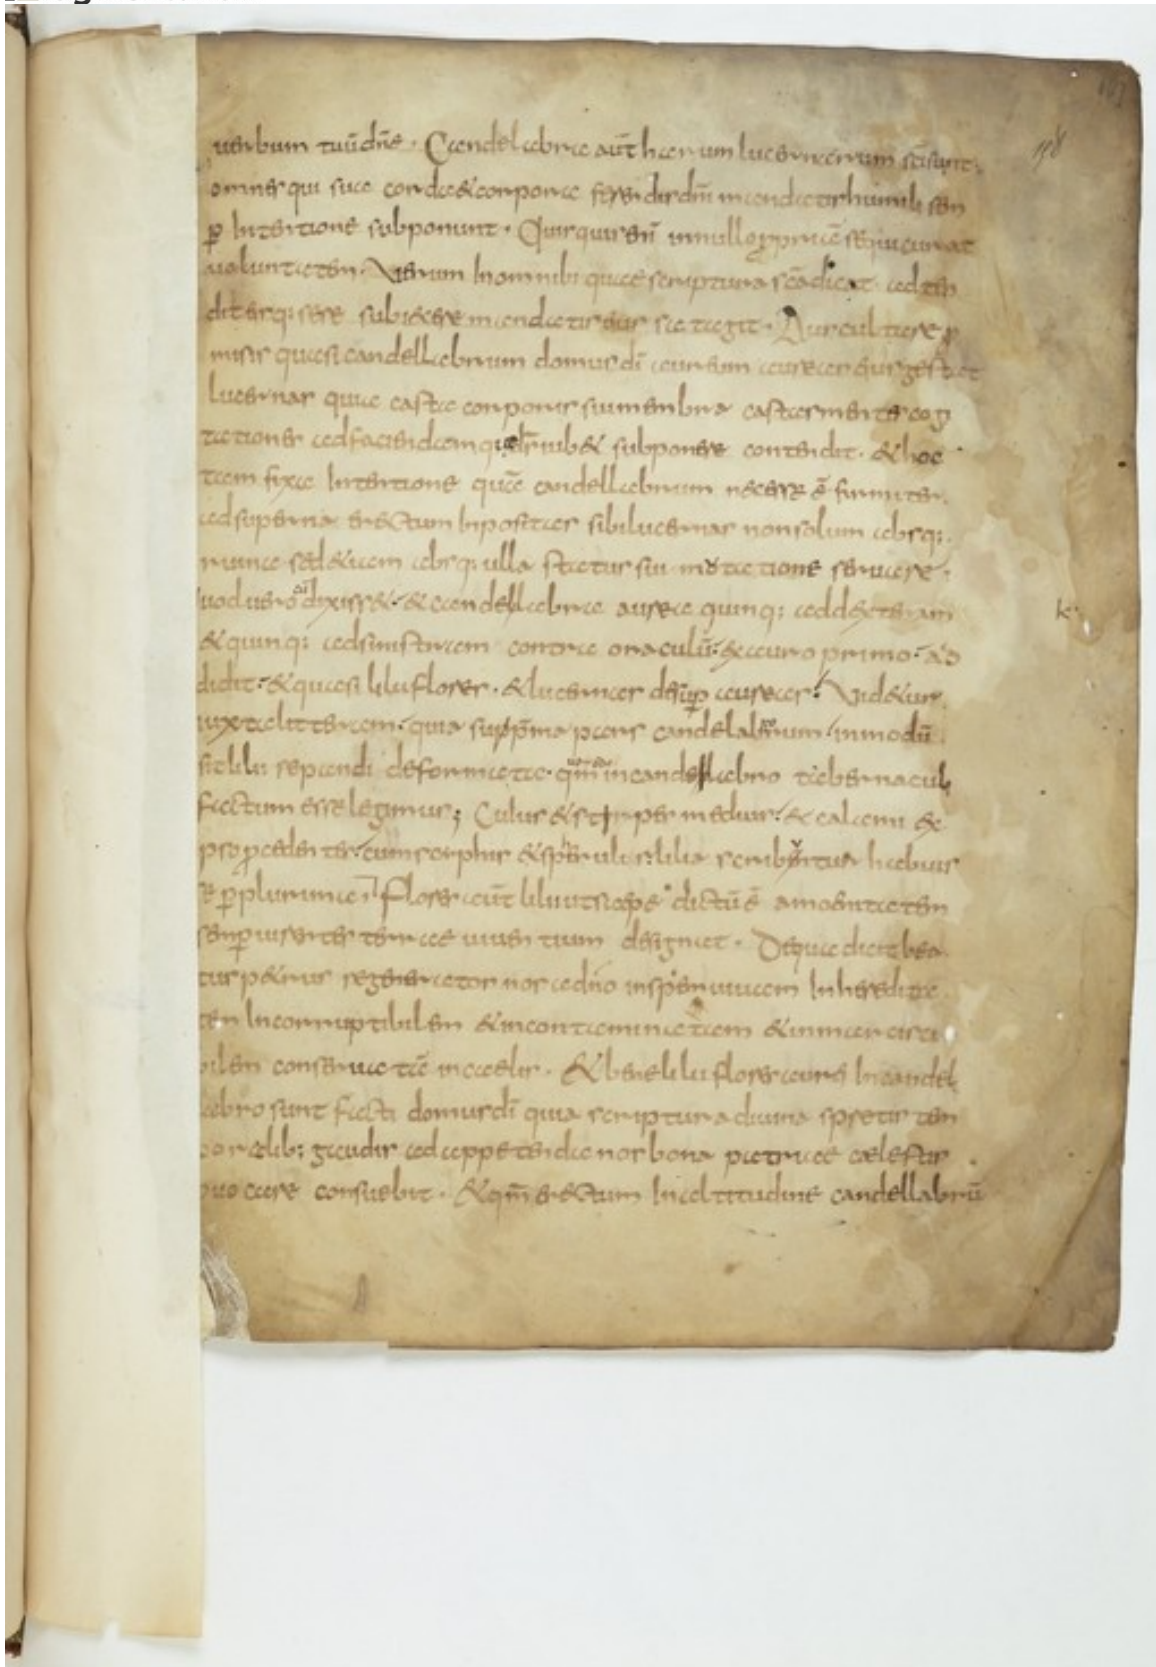 uerbum tuū dñe · Candelabra aūt harum lucernarum sc̄i sunt ·
omnes qui sua corda & corpora ferendis dn̄i mandatis humili sem
ꝑ Intentione subponunt · Quisquis enī in nullo ꝓpriā sequi curat
uoluntatem · Verum In omnibꝰ quae scriptura sc̄a dicat ad ten
diterq: sese subicere mandatis eius satagit · Auscultare ꝓ
misis quasi candellabrum domus dī aureum aureas eius gestat
lucernas quia casta corporis sui membra castas mentis cogi
tationes ad faciendam quae dn̄s iub& subponere contendit · & hoc
tam fixa Intentione quē candellabrum necesse ē firmiter
ad superna erectum Inpositas sibi lucernas non solum absq:
ruina sed &iam absq: ulla status sui mutatione seruare ·
uod uero dixiss& · & candellabra aurea quinq: ad dexteram
& quinq: ad sinistram contra oraculū · ex auro primo · ad
didit · & quasi lilii flores · & lucernas desuꝑ aureas · Vid&ur
iuxta litteram · quia suprema pars candelabrorum · in modū
sit lilii repandi deformata · qm̄ in candellabro tabernaculi
factum esse legimus ; Cuius & stirpe medius · & calami ex
ipso ꝓcedentes · cum scyphis & sperulis · & lilia scribuntur habuis
se ꝑ plurima · Flores aūt lilii ut saepe dictū ē amoenitatem
semꝑ uirentis terrae uiuentium designat · De qua dicit bea
tus p&rus regenerator nos a dn̄o in spem uiuam In heredita
tem Incorruptibilem & incontaminatam & inmarcisci
bilem conseruatā in caelis · & bene lilii flores aureę In candel
labro sunt facti domus dī quia scriptura diuina spretis tem
poralib: gaudiis ad appetenda nos bona patriae caelestis
uocare consueuit · & qm̄ erectum In altitudine candellabrū
k
158